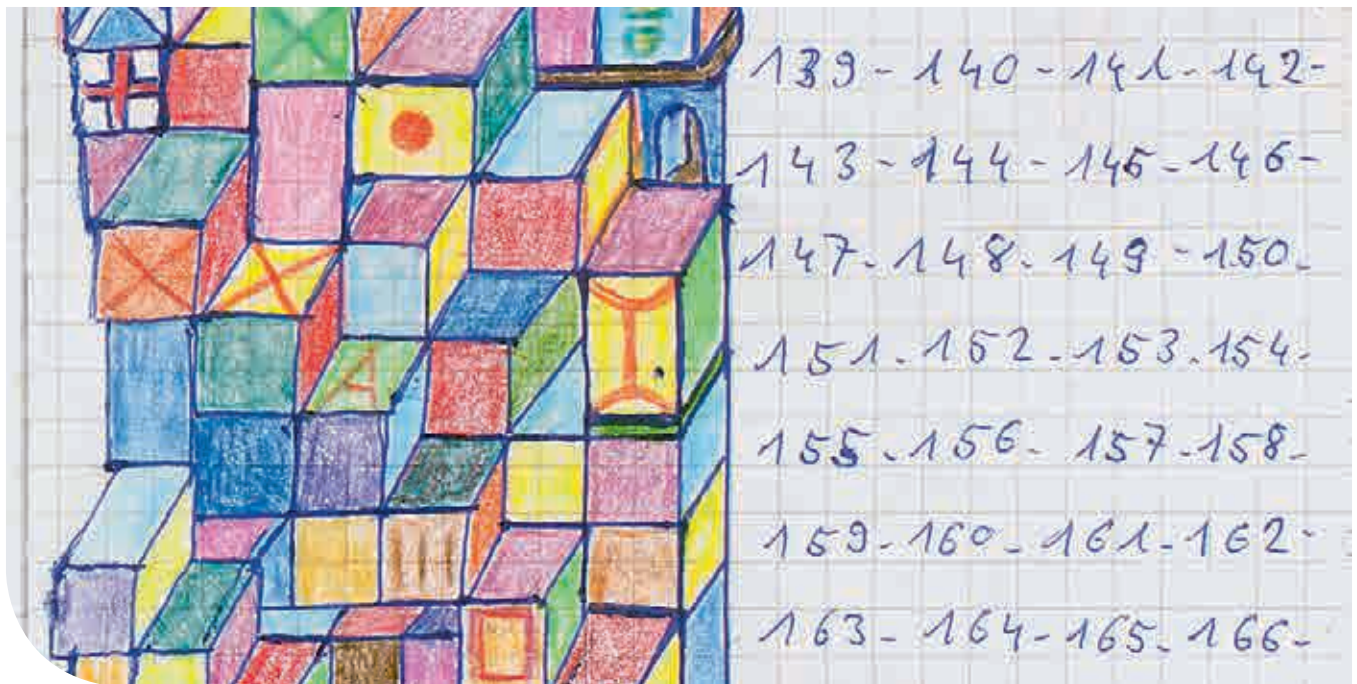 139-140-141-142-
143-144-145-146-
147-148-149-150-
151-152-153-154-
155-156-157-158-
159-160-161-162-
163-164-165-166-
A